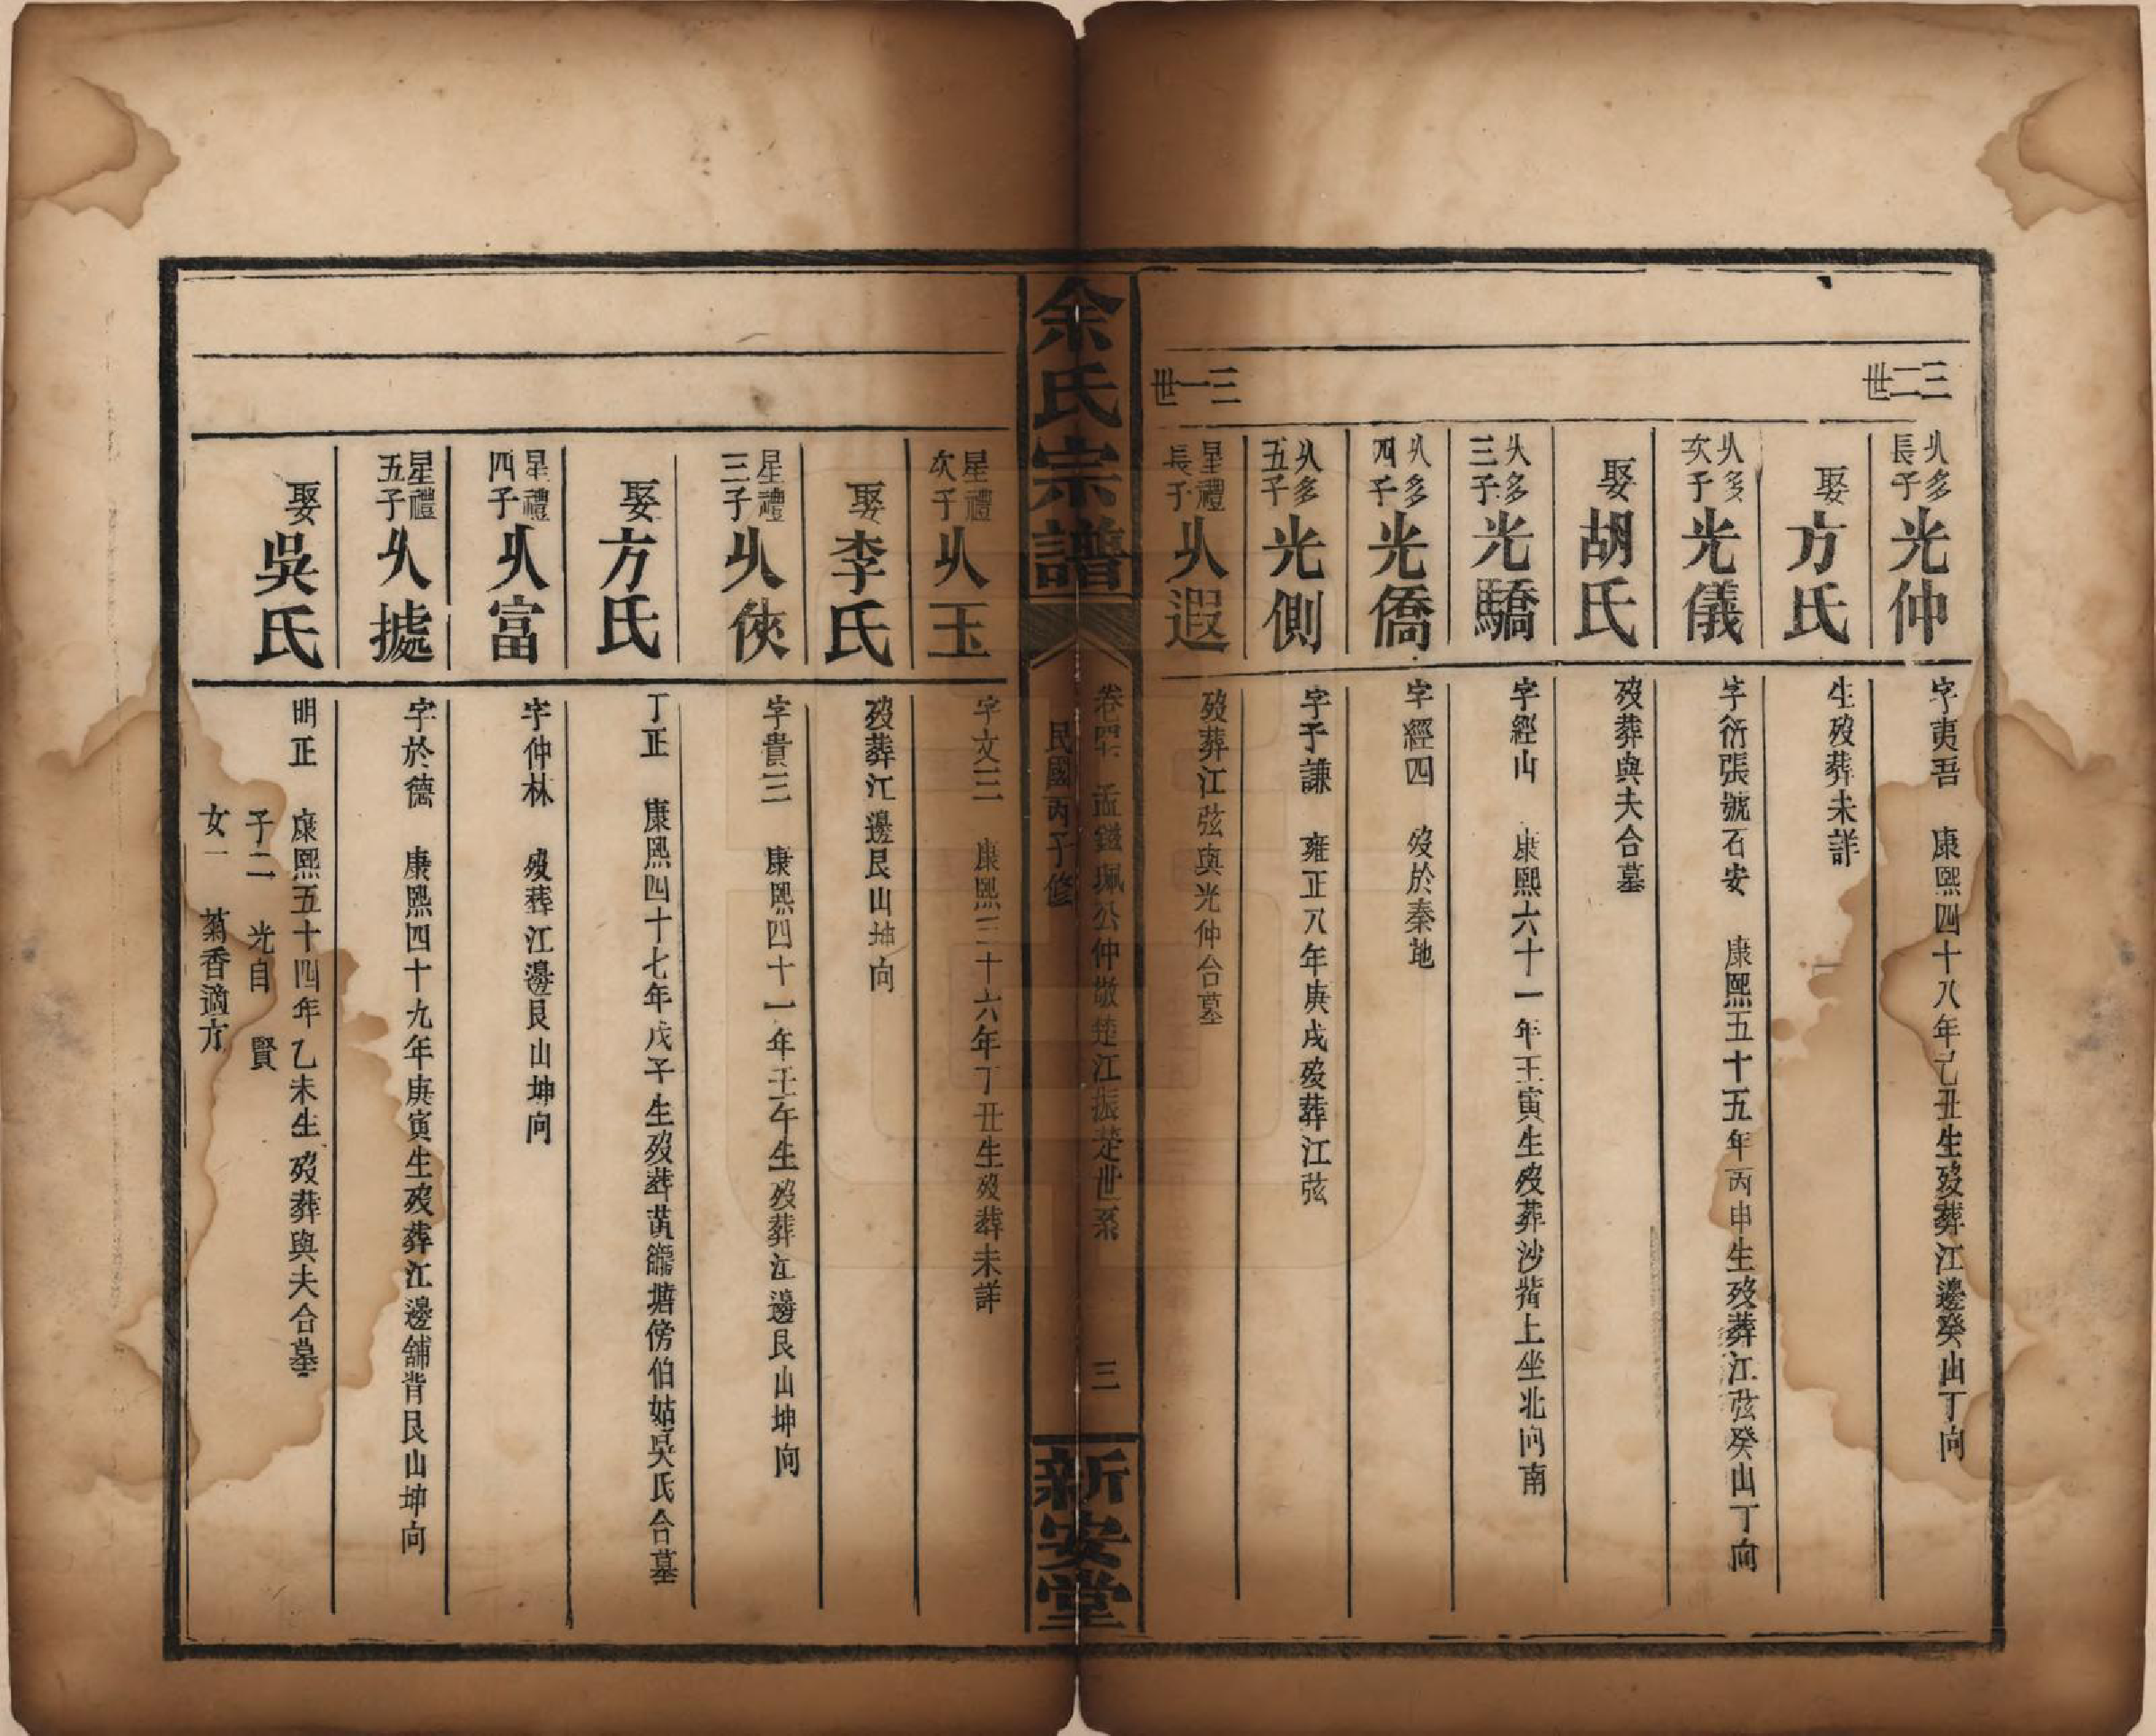 三二世
以多長子光仲 字夷吾 康熙四十八年己丑生歿葬江邊癸山丁向
娶方氏 生歿葬未詳
以多次子光儀 字衍張號石安 康熙五十五年丙申生歿葬江弦癸山丁向
娶胡氏 歿葬與夫合墓
以多三子光驕 字經山 康熙六十一年壬寅生歿葬沙背上坐北向南
以多四子光僑 字經四 歿於秦地
以多五子光側 字予謙 雍正八年庚戌歿葬江弦
三一世
星禮長子以遐 歿葬江弦與光仲合墓
余氏宗譜
卷 孟鎡珮公仲敬楚江振楚世系 三
民國丙子修
新安堂
星禮次子以玉 字文三 康熙三十六年丁丑生歿葬未詳
娶李氏 歿葬江邊艮山坤向
星禮三子以俠 字貴三 康熙四十一年壬午生歿葬江邊艮山坤向
娶方氏 丁正 康熙四十七年戊子生歿葬黃 塘傍伯姑吳氏合墓
星禮四子以富 字仲林 歿葬江邊艮山坤向
星禮五子以據 字於德 康熙四十九年庚寅生歿葬江邊舖背艮山坤向
娶吳氏 明正 康熙五十四年乙未生歿葬與夫合墓
子二 光自 賢
女一 菊香適方